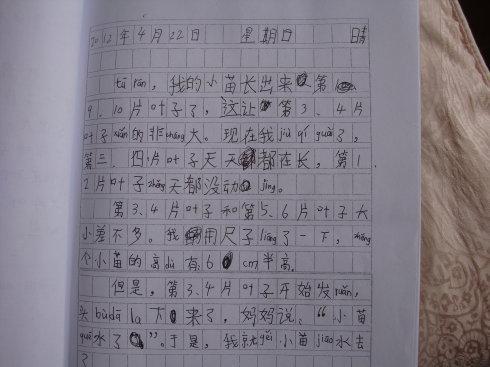 2012年4月22日 星期日 晴
tū rán,我的小苗长出来第
9、10片叶子了,这让第3、4片
叶子xiǎn的非cháng大。现在我jiù qí guài了,
第三、四片叶子天天都在长,第1、
2片叶子zhěng天都没动jìng。
第3、4片叶子和第5、6片叶子大
小差不多。我用尺子liáng了一下,zhěng
个小苗的高dù有6cm半高。
但是,第3、4片叶子开始发ruǎn,
头bù dā la下来了,妈妈说:“小苗
quē水了”。于是,我就gěi小苗jiāo水去
了